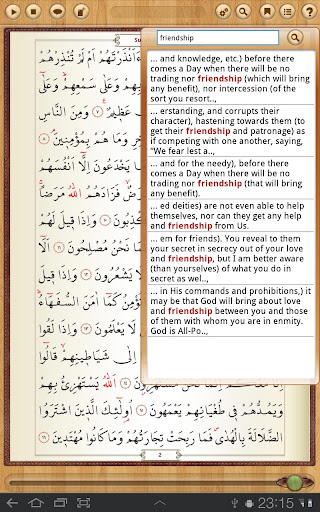 friendship
Su
ءَاَنْذَرْتَهُمْ اَمْ لَمْ تُنْذِرْهُمْ
وَعَلٰى سَمْعِهِمْ وَعَلٰٓى
عَظِيمٌ ٧ وَمِنَ النَّاسِ
وَمَا هُمْ بِمُؤْمِنِينَ ٨
يَخْدَعُونَ اِلَّٓا اَنْفُسَهُمْ
اللّٰهُ مَرَضًا
يَكْذِبُونَ ١٠ وَاِذَا قِيلَ لَهُمْ
نَحْنُ مُصْلِحُونَ ١١
لَا يَشْعُرُونَ ١٢ وَاِذَا قِيلَ
كَمَٓا اٰمَنَ السُّفَهَٓاءُ
لَا يَعْلَمُونَ ١٣
اِلٰى شَيَاطِينِهِمْ قَالُٓوا
١٤ اَللّٰهُ يَسْتَهْزِئُ بِهِمْ
وَيَمُدُّهُمْ فِى طُغْيَانِهِمْ يَعْمَهُونَ ١٥ اُو۬لٰٓئِكَ الَّذِينَ اشْتَرَوُا
الضَّلَالَةَ بِالْهُدٰى فَمَا رَبِحَتْ تِجَارَتُهُمْ وَمَا كَانُوا مُهْتَدِينَ ١٦
2
... and knowledge, etc.) before there
comes a Day when there will be no
trading nor friendship (which will bring
any benefit), nor intercession (of the
sort you resort..,
... erstanding, and corrupts their
character), hastening towards them (to
get their friendship and patronage) as
if competing with one another, saying,
"We fear lest a..,
... and for the needy), before there
comes a Day when there will be no
trading nor friendship (that will bring
any benefit).
... ed deities) are not even able to help
themselves, nor can they get any help
and friendship from Us.
... em for friends). You reveal to them
your secret in secrecy out of your love
and friendship, but I am better aware
(than yourselves) of what you do in
secret as wel..,
... in His commands and prohibitions,) it
may be that God will bring about love
and friendship between you and those
of them with whom you are in enmity.
God is All-Po..,
23:15